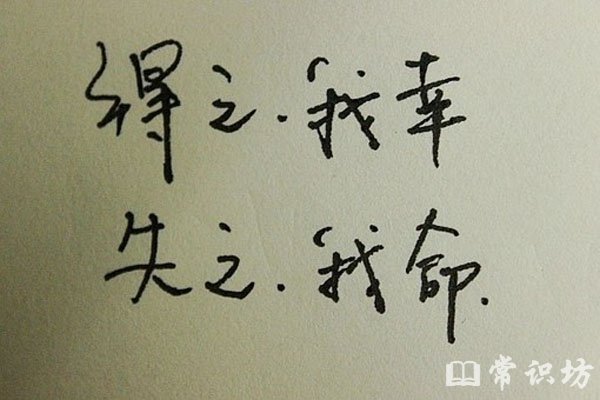 得之.我幸
失之.我命.
常识坊